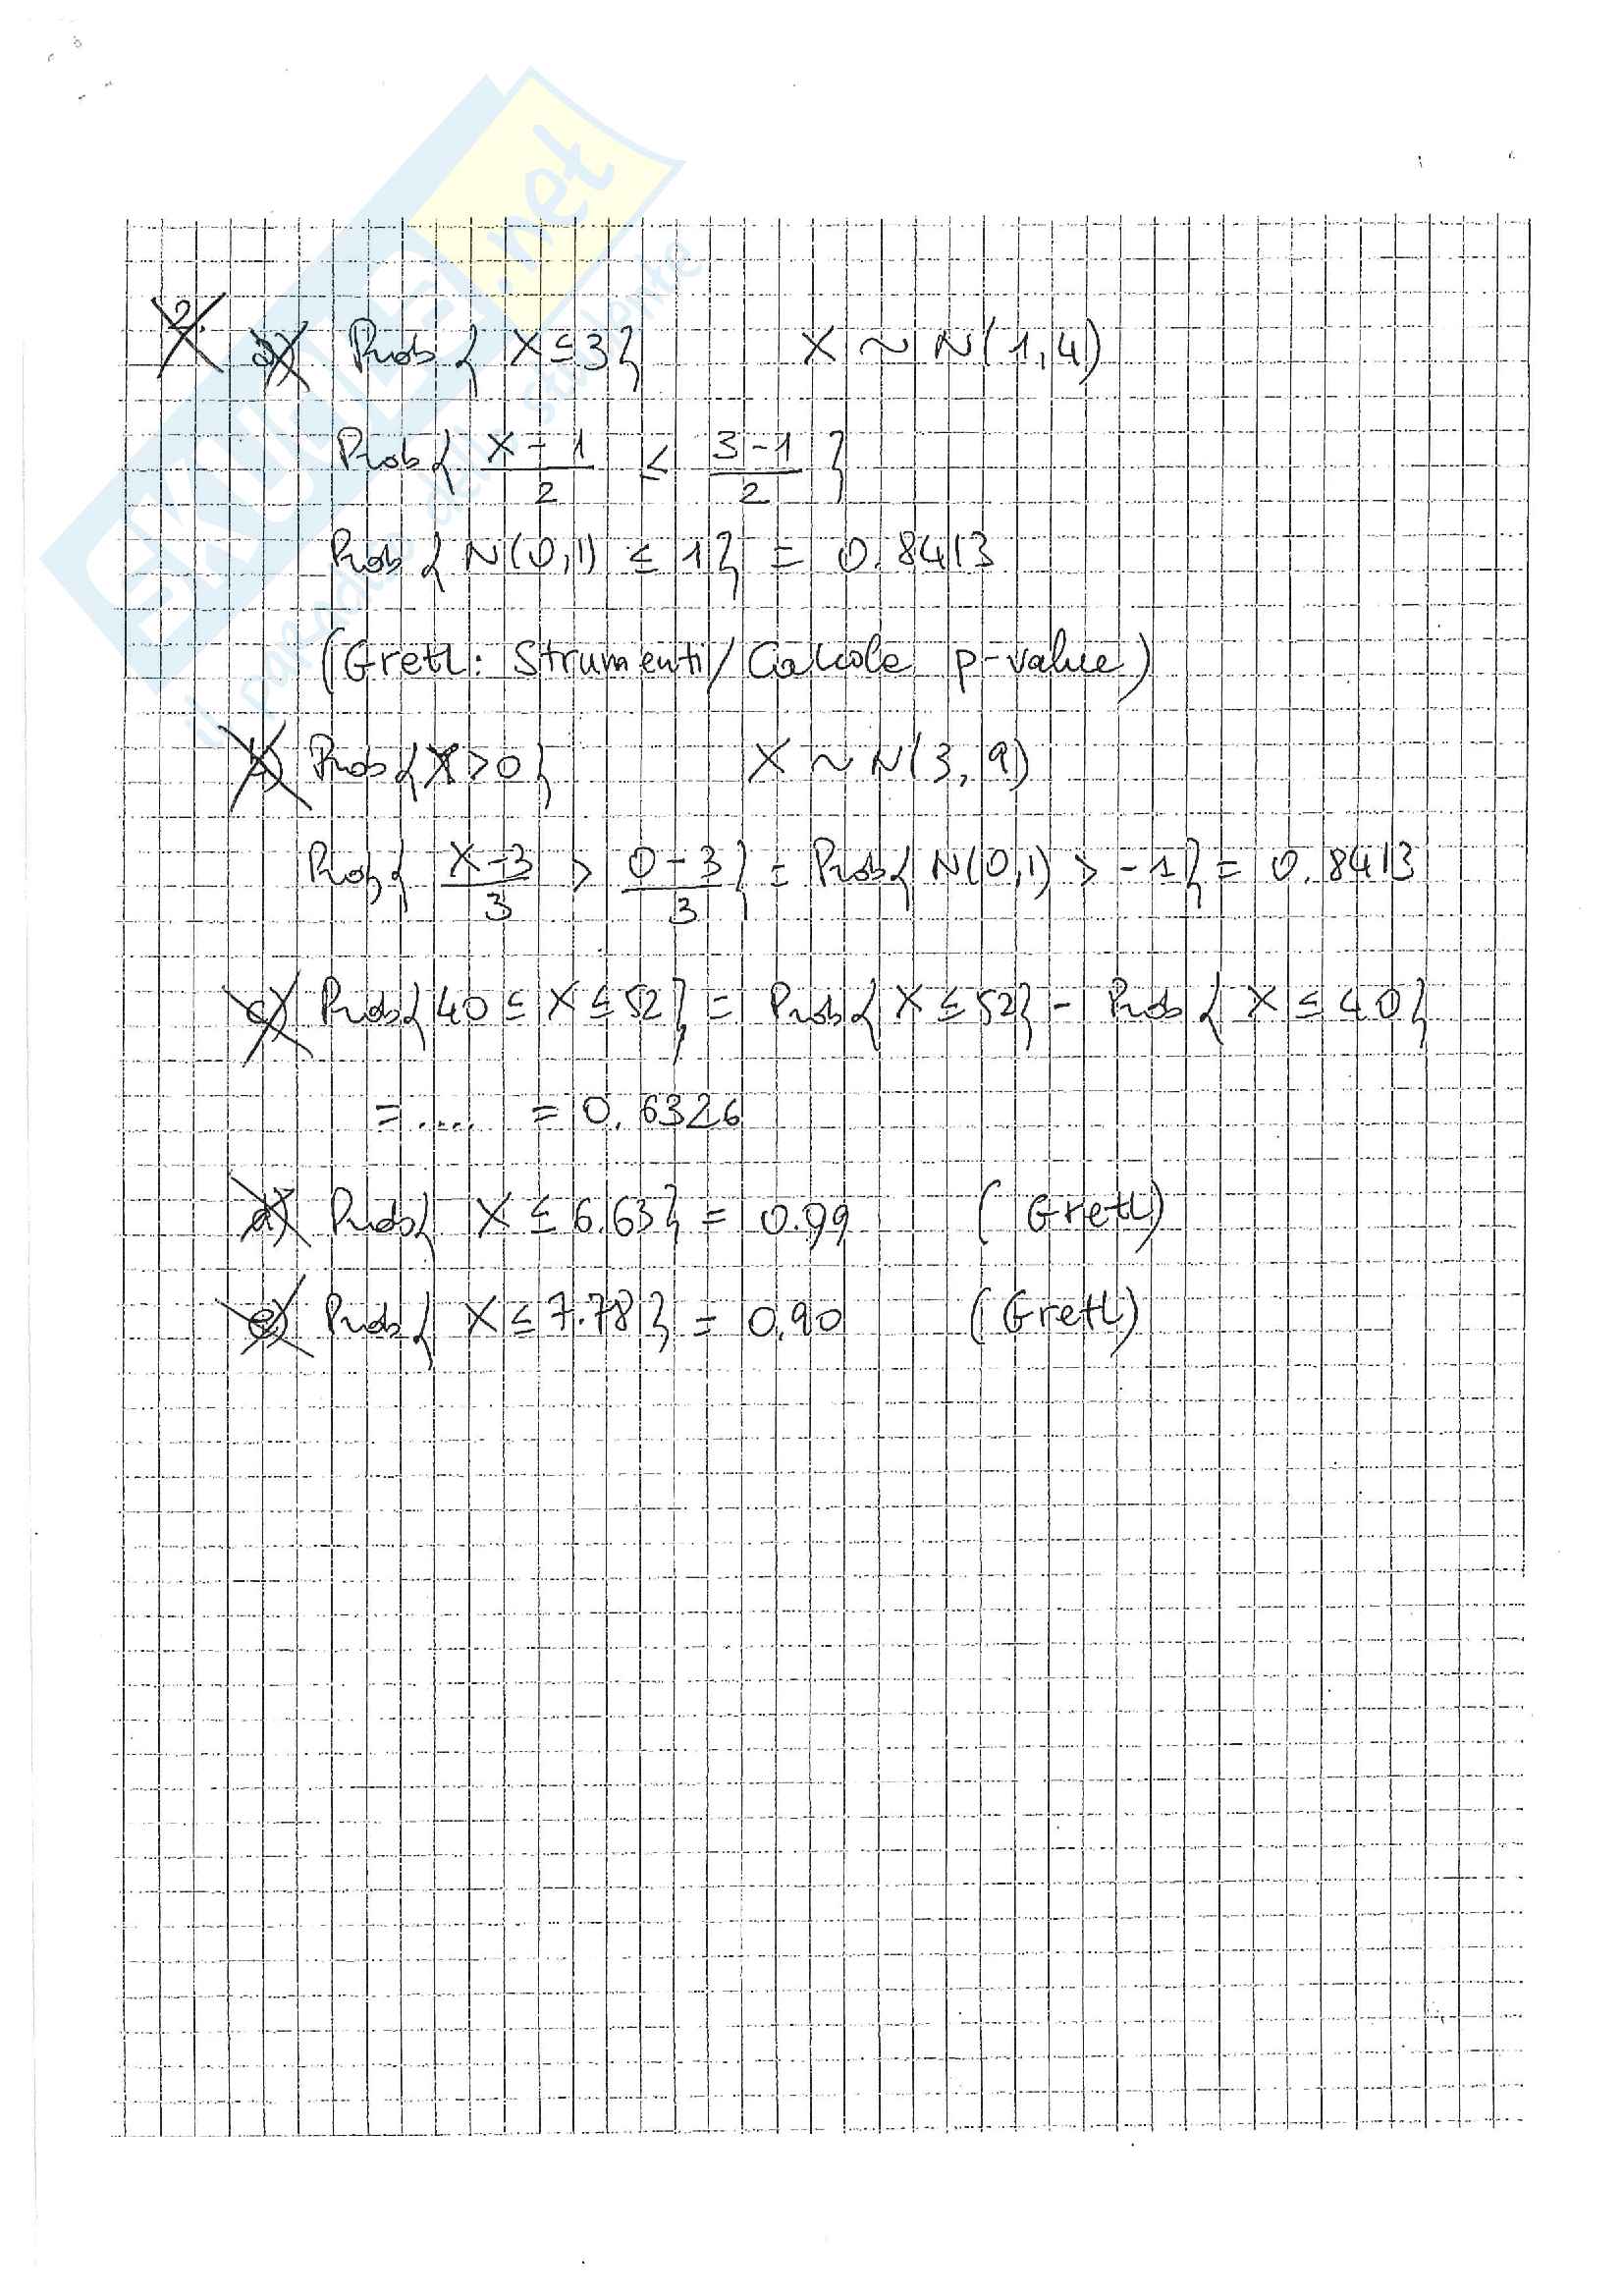 SKUOLA.net
il paradiso dello studente
2. a) Prob { X ≤ 3 } X ~ N(1,4)
Prob { (X-1)/2 < (3-1)/2 }
Prob { N(0,1) ≤ 1 } = 0.8413
(Gretl: Strumenti/ Calcola p-value)
b) Prob { X > 0 } X ~ N(3,9)
Prob { (X-3)/3 > (0-3)/3 } = Prob { N(0,1) > -1 } = 0.8413
c) Prob { 40 ≤ X ≤ 52 } = Prob { X ≤ 52 } - Prob { X ≤ 40 }
= .... = 0.6326
d) Prob { X ≤ 6.63 } = 0.99 (Gretl)
e) Prob { X ≤ 7.78 } = 0.90 (Gretl)